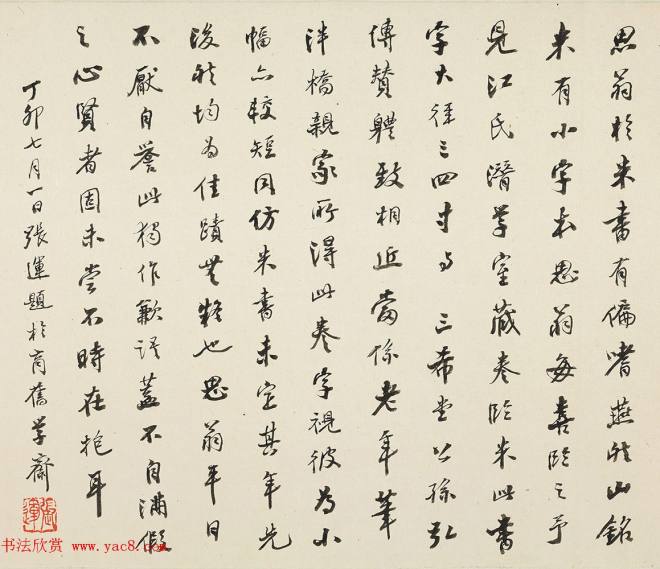 思翁於米書有偏嗜燕然山銘
米有小字本思翁每喜臨之予
見江氏潛學室藏卷臨米此書
字大徑三四寸与 三希堂公孫弘
傳贊體致相近當係老年筆
泮橋親家所得此卷字視彼為小
幅亦較短同仿米書未定其年先
後然均為佳蹟無疑也思翁平日
不厭自譽此獨作歉語蓋不自滿假
之心賢者固未嘗不時在抱耳
丁卯七月一日張運題於育舊學齋
張運
书法欣赏 www.yac8.com